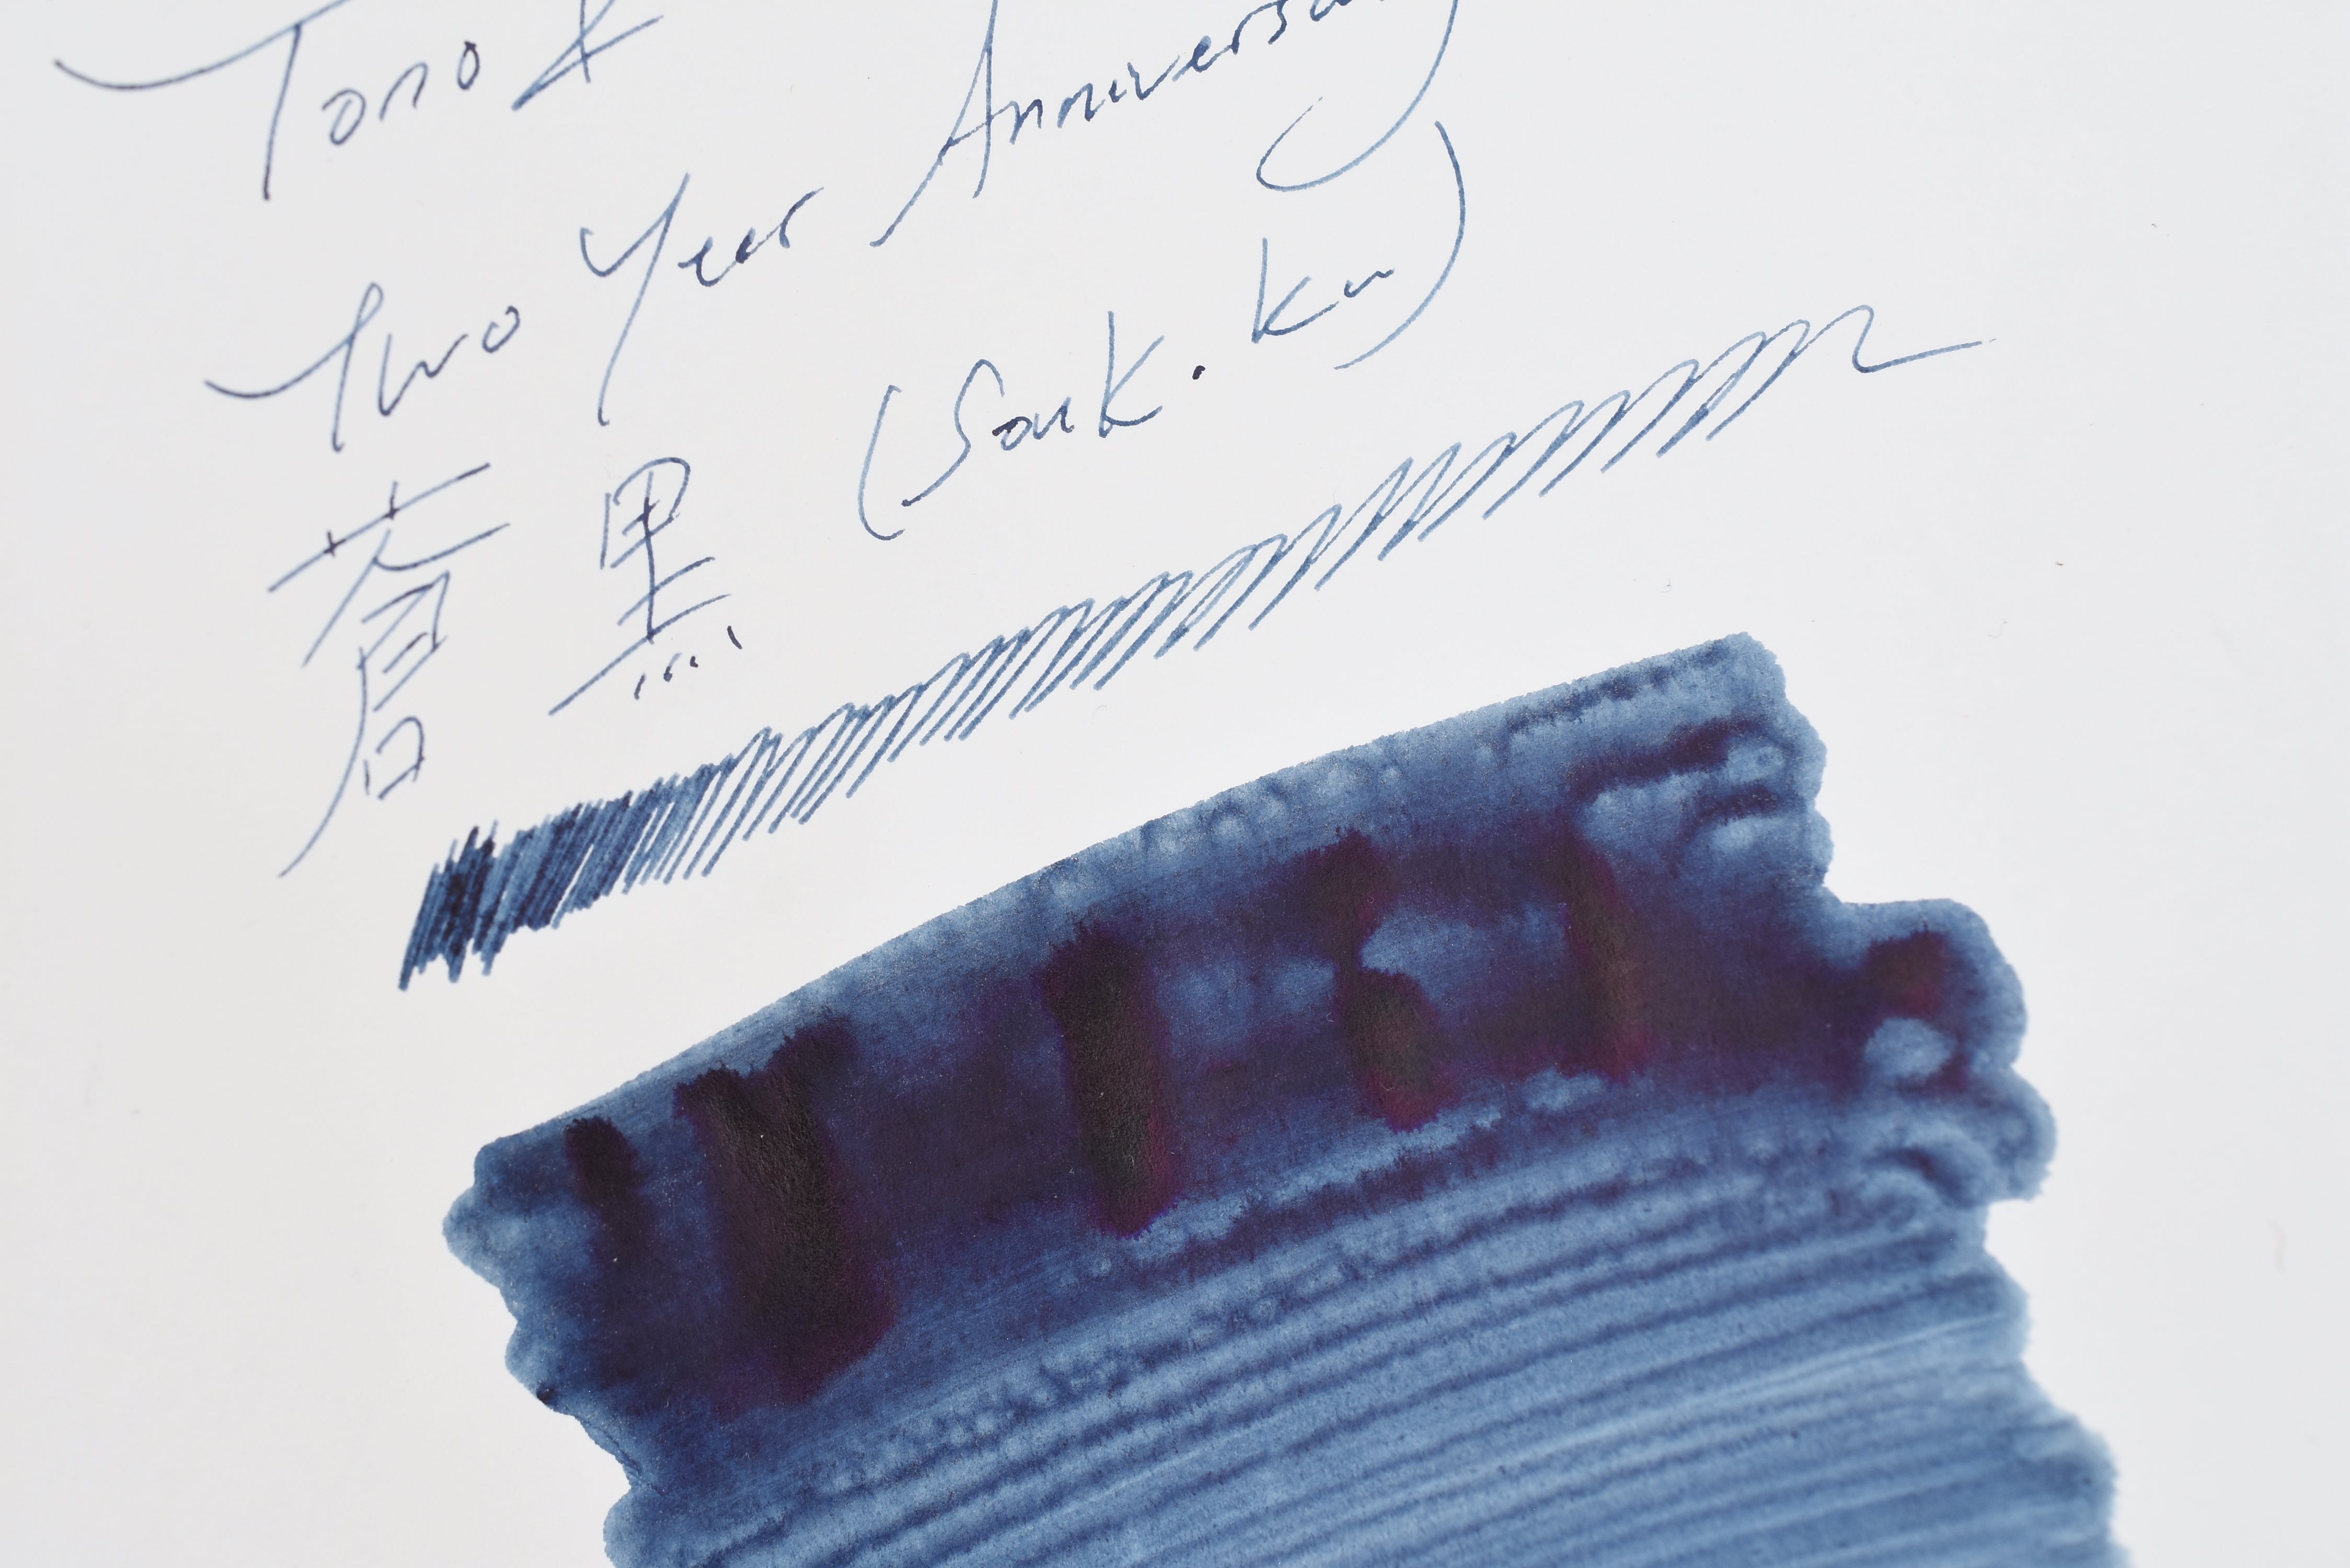 Tono &
Two Year Anniversary
蒼黒 (Souk.Ku)